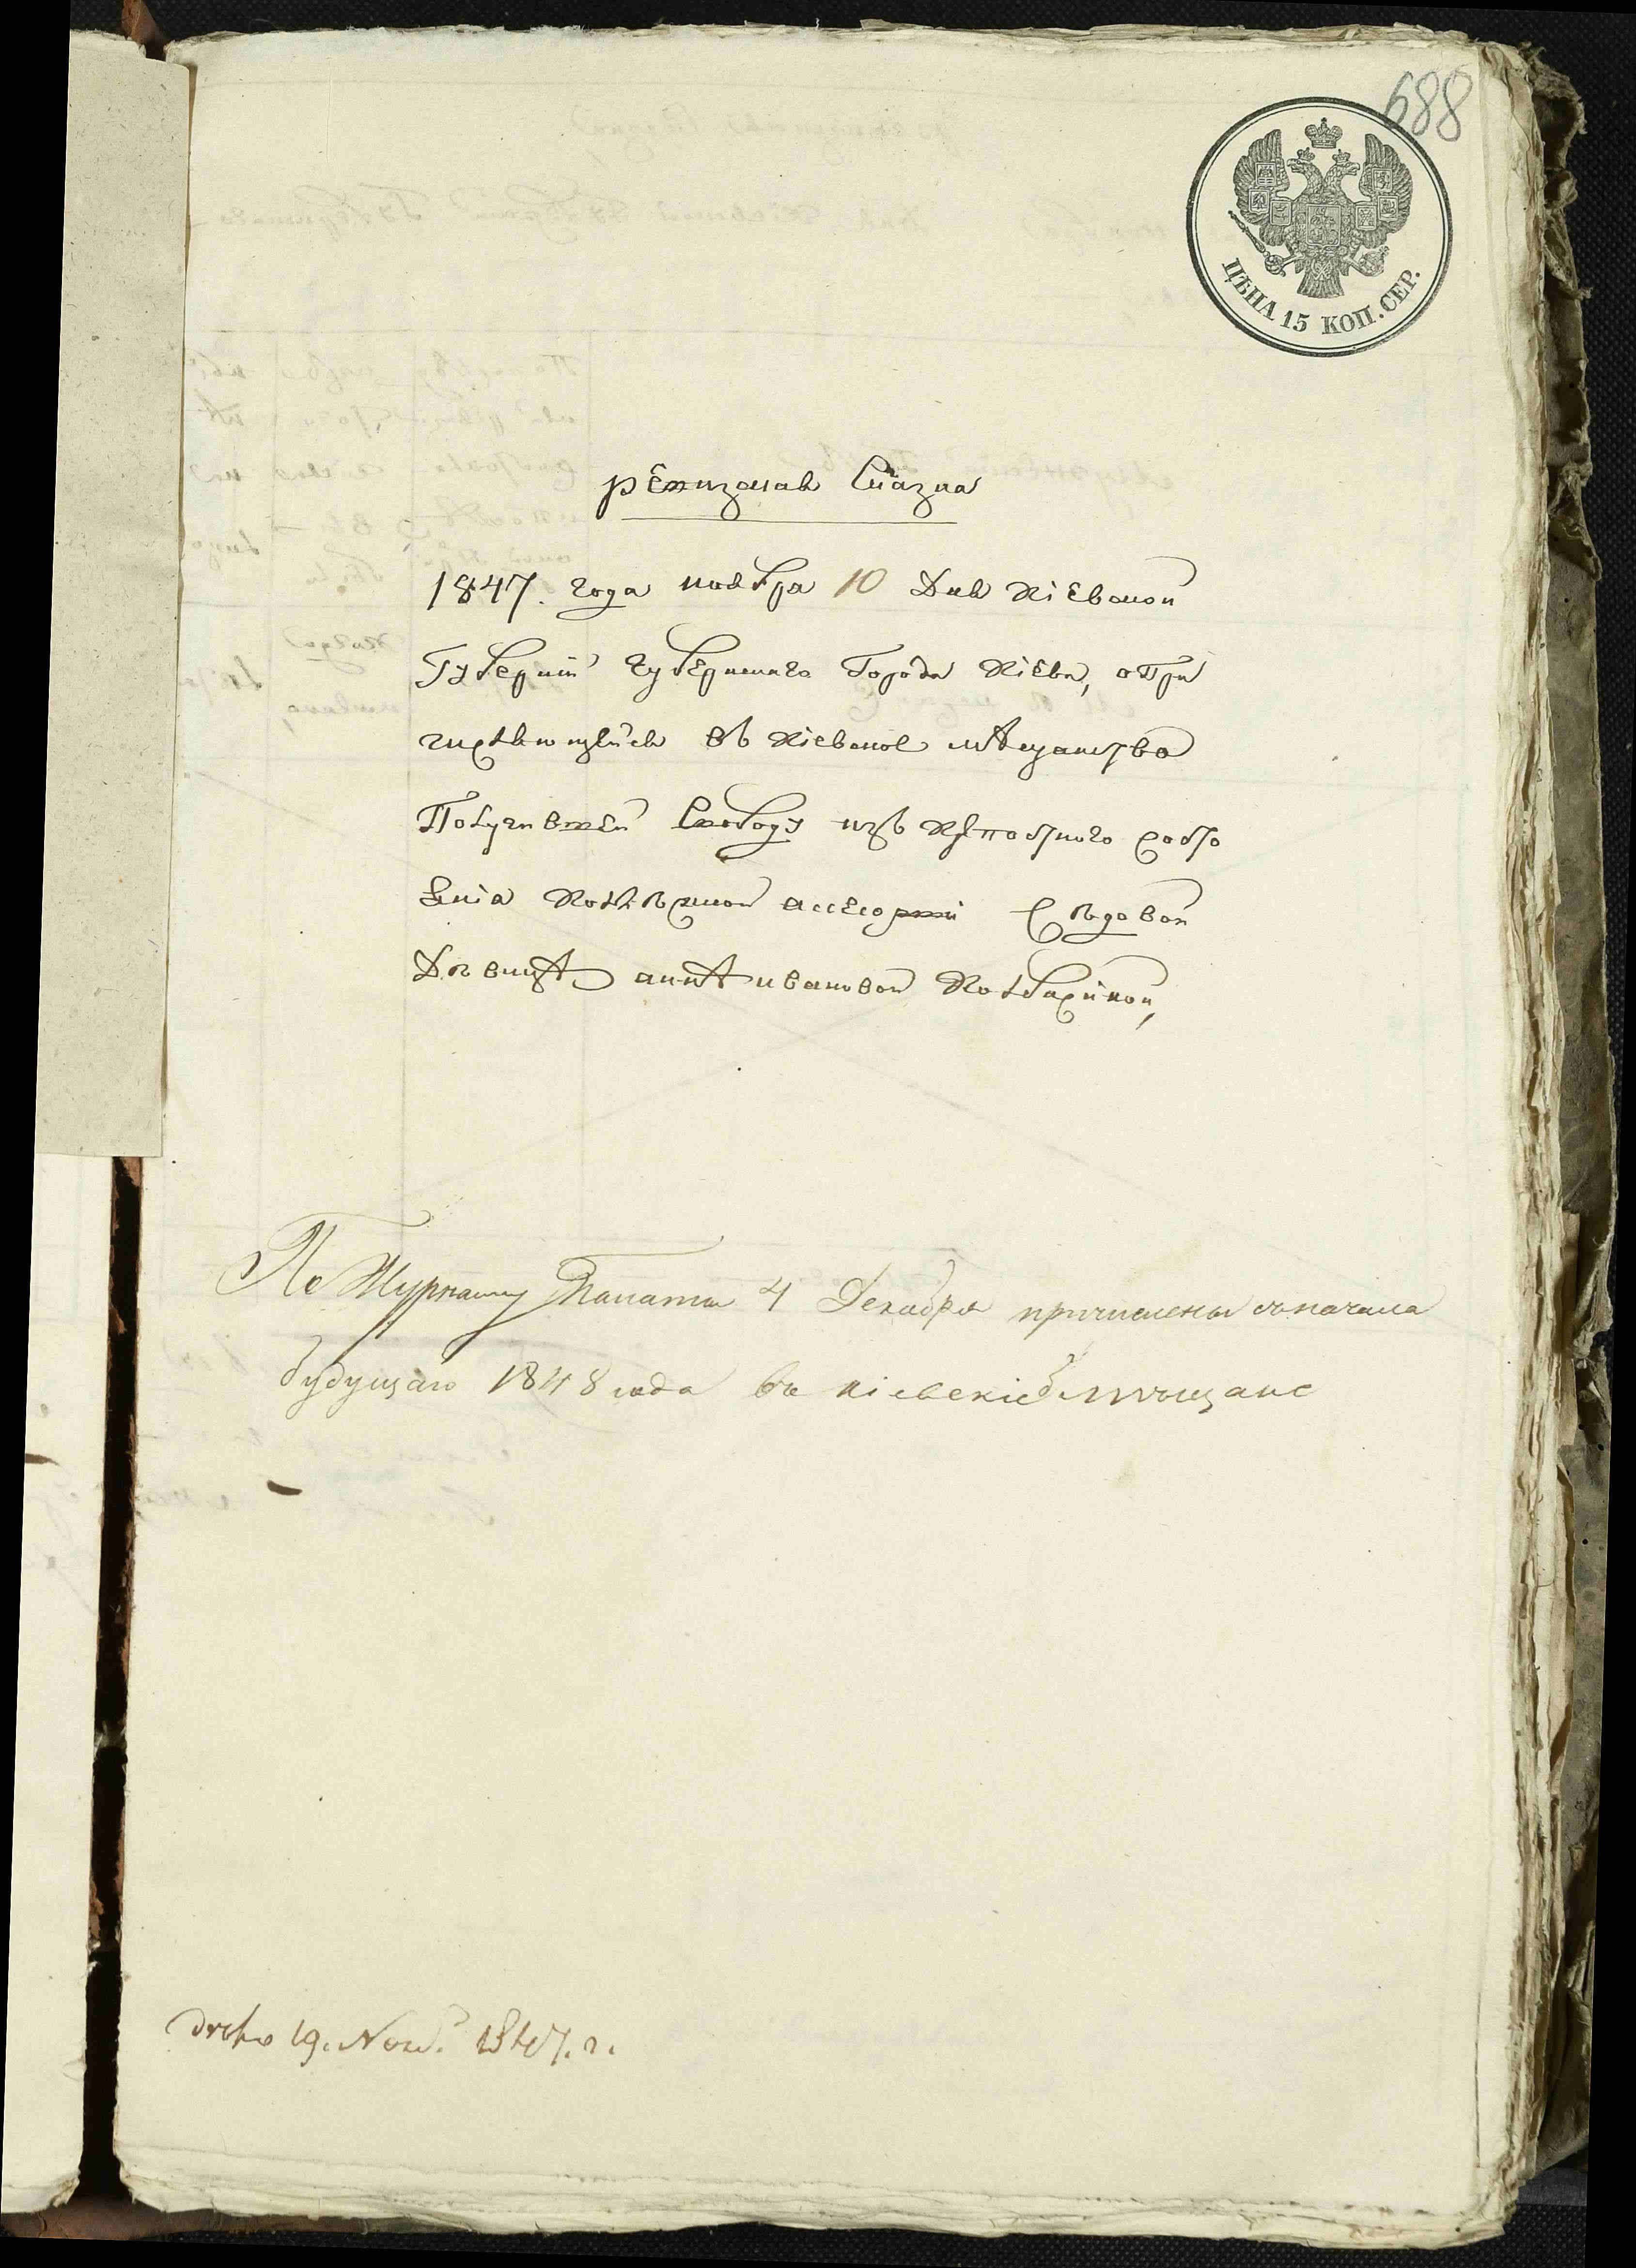 688
ЦѢНА 15 КОП. СЕР.
ревизская Сказка
1847. года ноября 10 дня Кіевской
Губерніи губернскаго Города Кіева, о при
числяющейся въ Кіевское мѣщанство
Получившей Свободу изъ крѣпостного состо
янія Коллежской ассесорши
Дѣвицѣ аннѣ ивановой
По Журналу Палаты 4 Декабря причислены съ начала
будущаго 1848 года въ кіевскіе мѣщане
19. 1847. г.